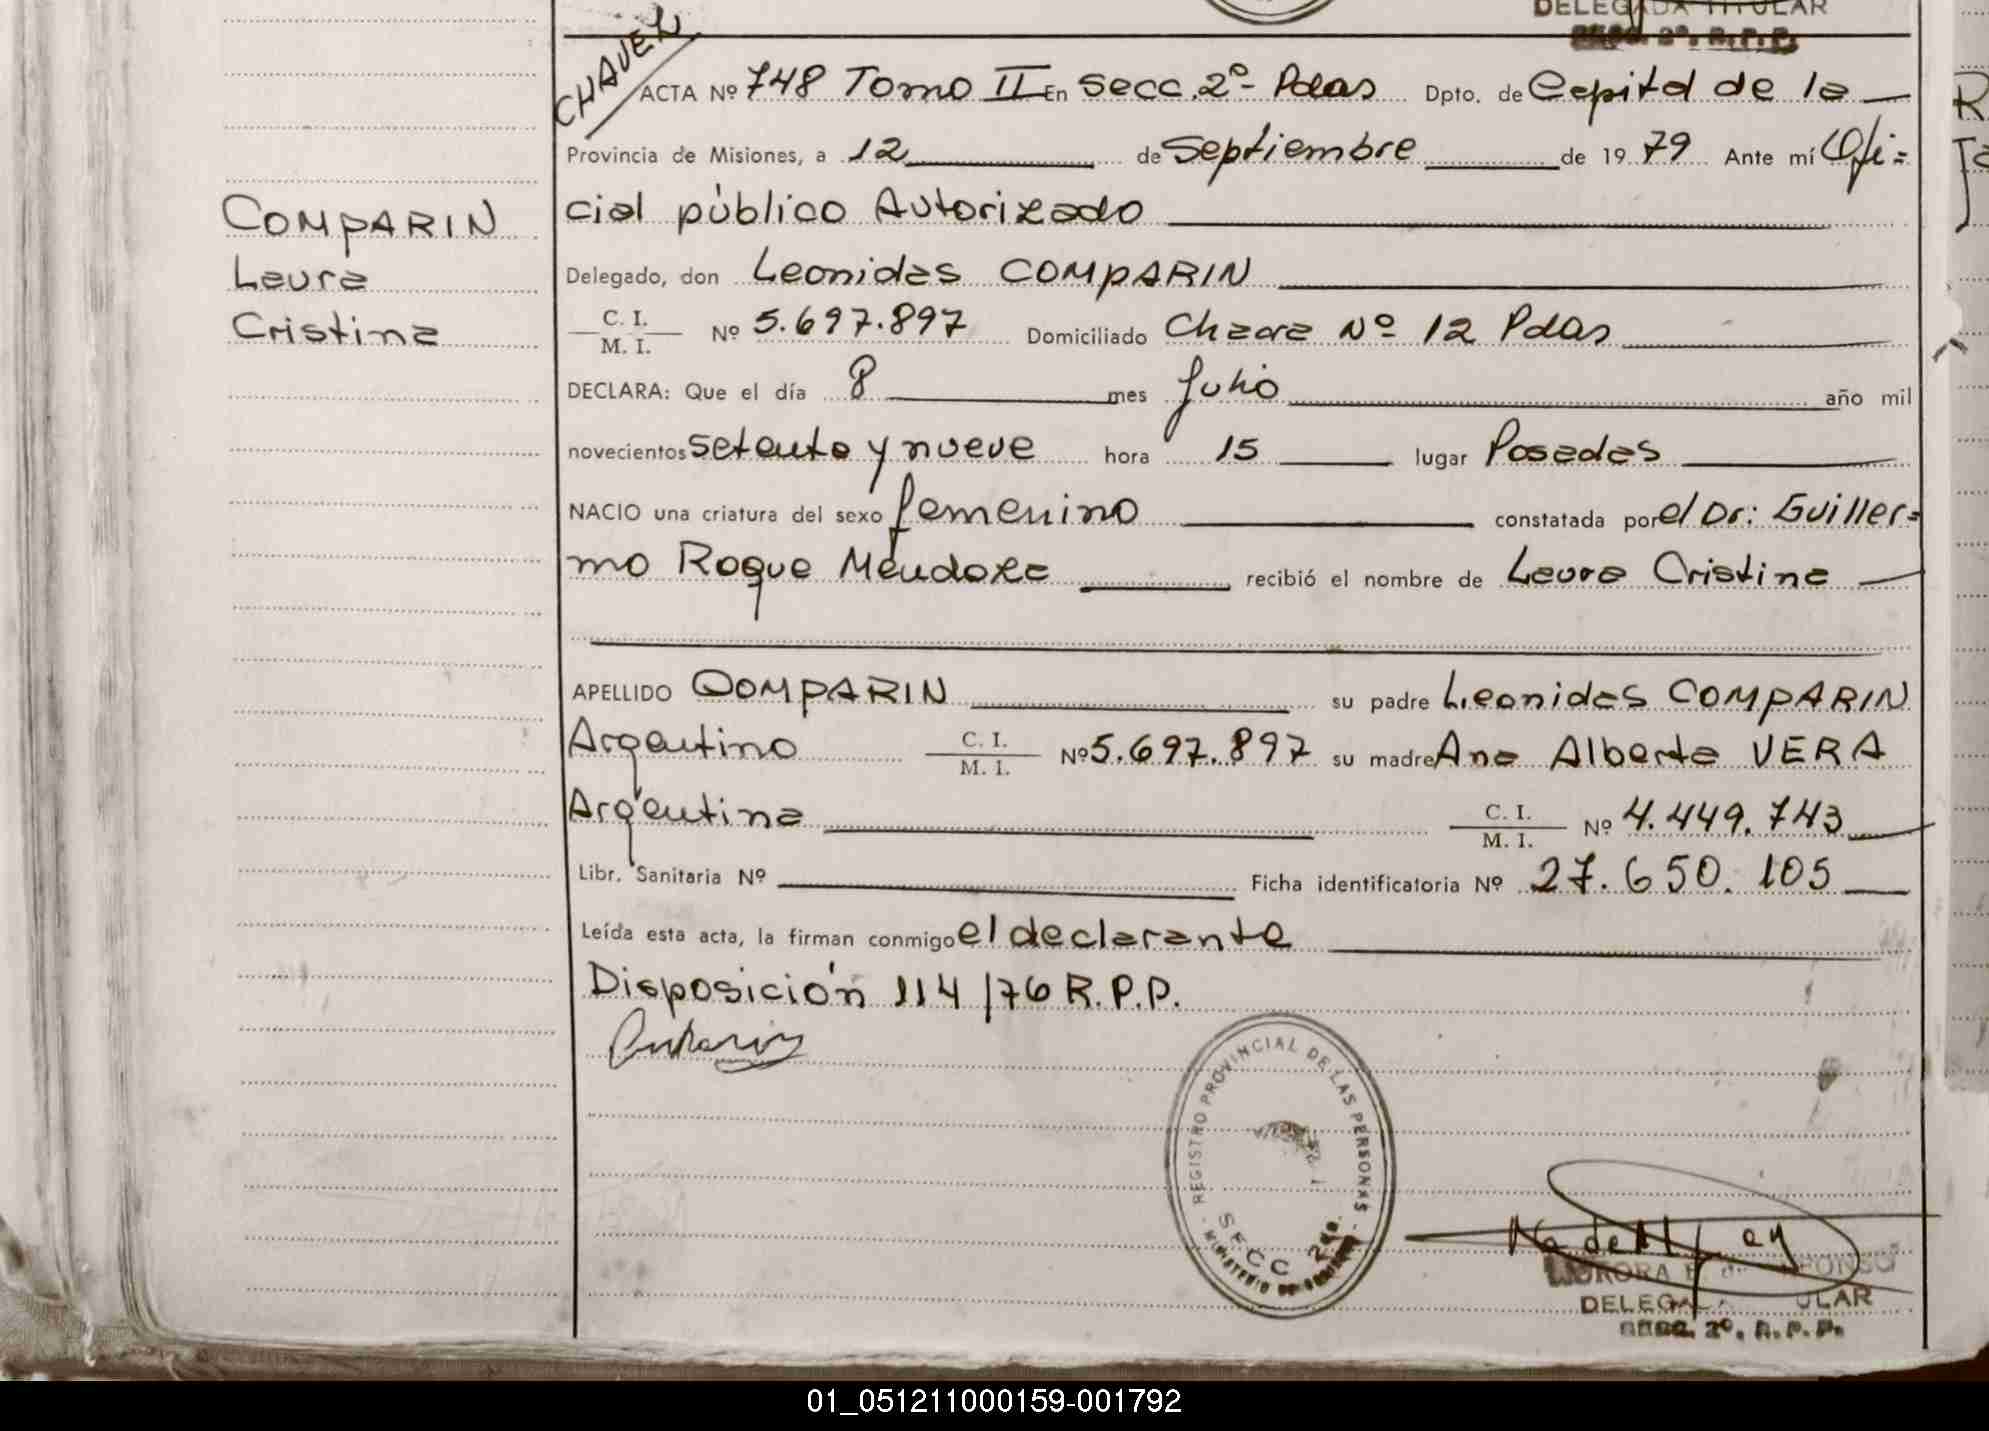 DELEGADA TITULAR
SECC. 2º. R.P.P.
CHAVEZ
ACTA Nº 748 Tomo II En Secc. 2º- Pdas Dpto. de Capital de la
Provincia de Misiones, a 12 de Septiembre de 1979 Ante mí Ofi=
cial público Autorizado
COMPARIN
Laura
Cristina
Delegado, don Leonidas COMPARIN
C. I.
M. I. Nº 5.697.897 Domiciliado Chacra Nº 12 Pdas
DECLARA: Que el día 8 mes Julio año mil
novecientos setenta y nueve hora 15 lugar Posadas
NACIO una criatura del sexo femenino constatada por el Dr: Guiller=
mo Roque Mendoza recibió el nombre de Laura Cristina
APELLIDO COMPARIN su padre Leonidas COMPARIN
Argentino C. I.
M. I. Nº 5.697.897 su madre Ana Alberta VERA
Argentina C. I.
M. I. Nº 4.449.743
Libr. Sanitaria Nº Ficha identificatoria Nº 27.650.105
Leída esta acta, la firman conmigo el declarante
Disposición 114/76 R.P.P.
REGISTRO PROVINCIAL DE LAS PERSONAS
SECC 2da.
MINISTERIO DE GOBIERNO
DELEGADA TITULAR
SECC. 2º. R.P.P.
01_051211000159-001792